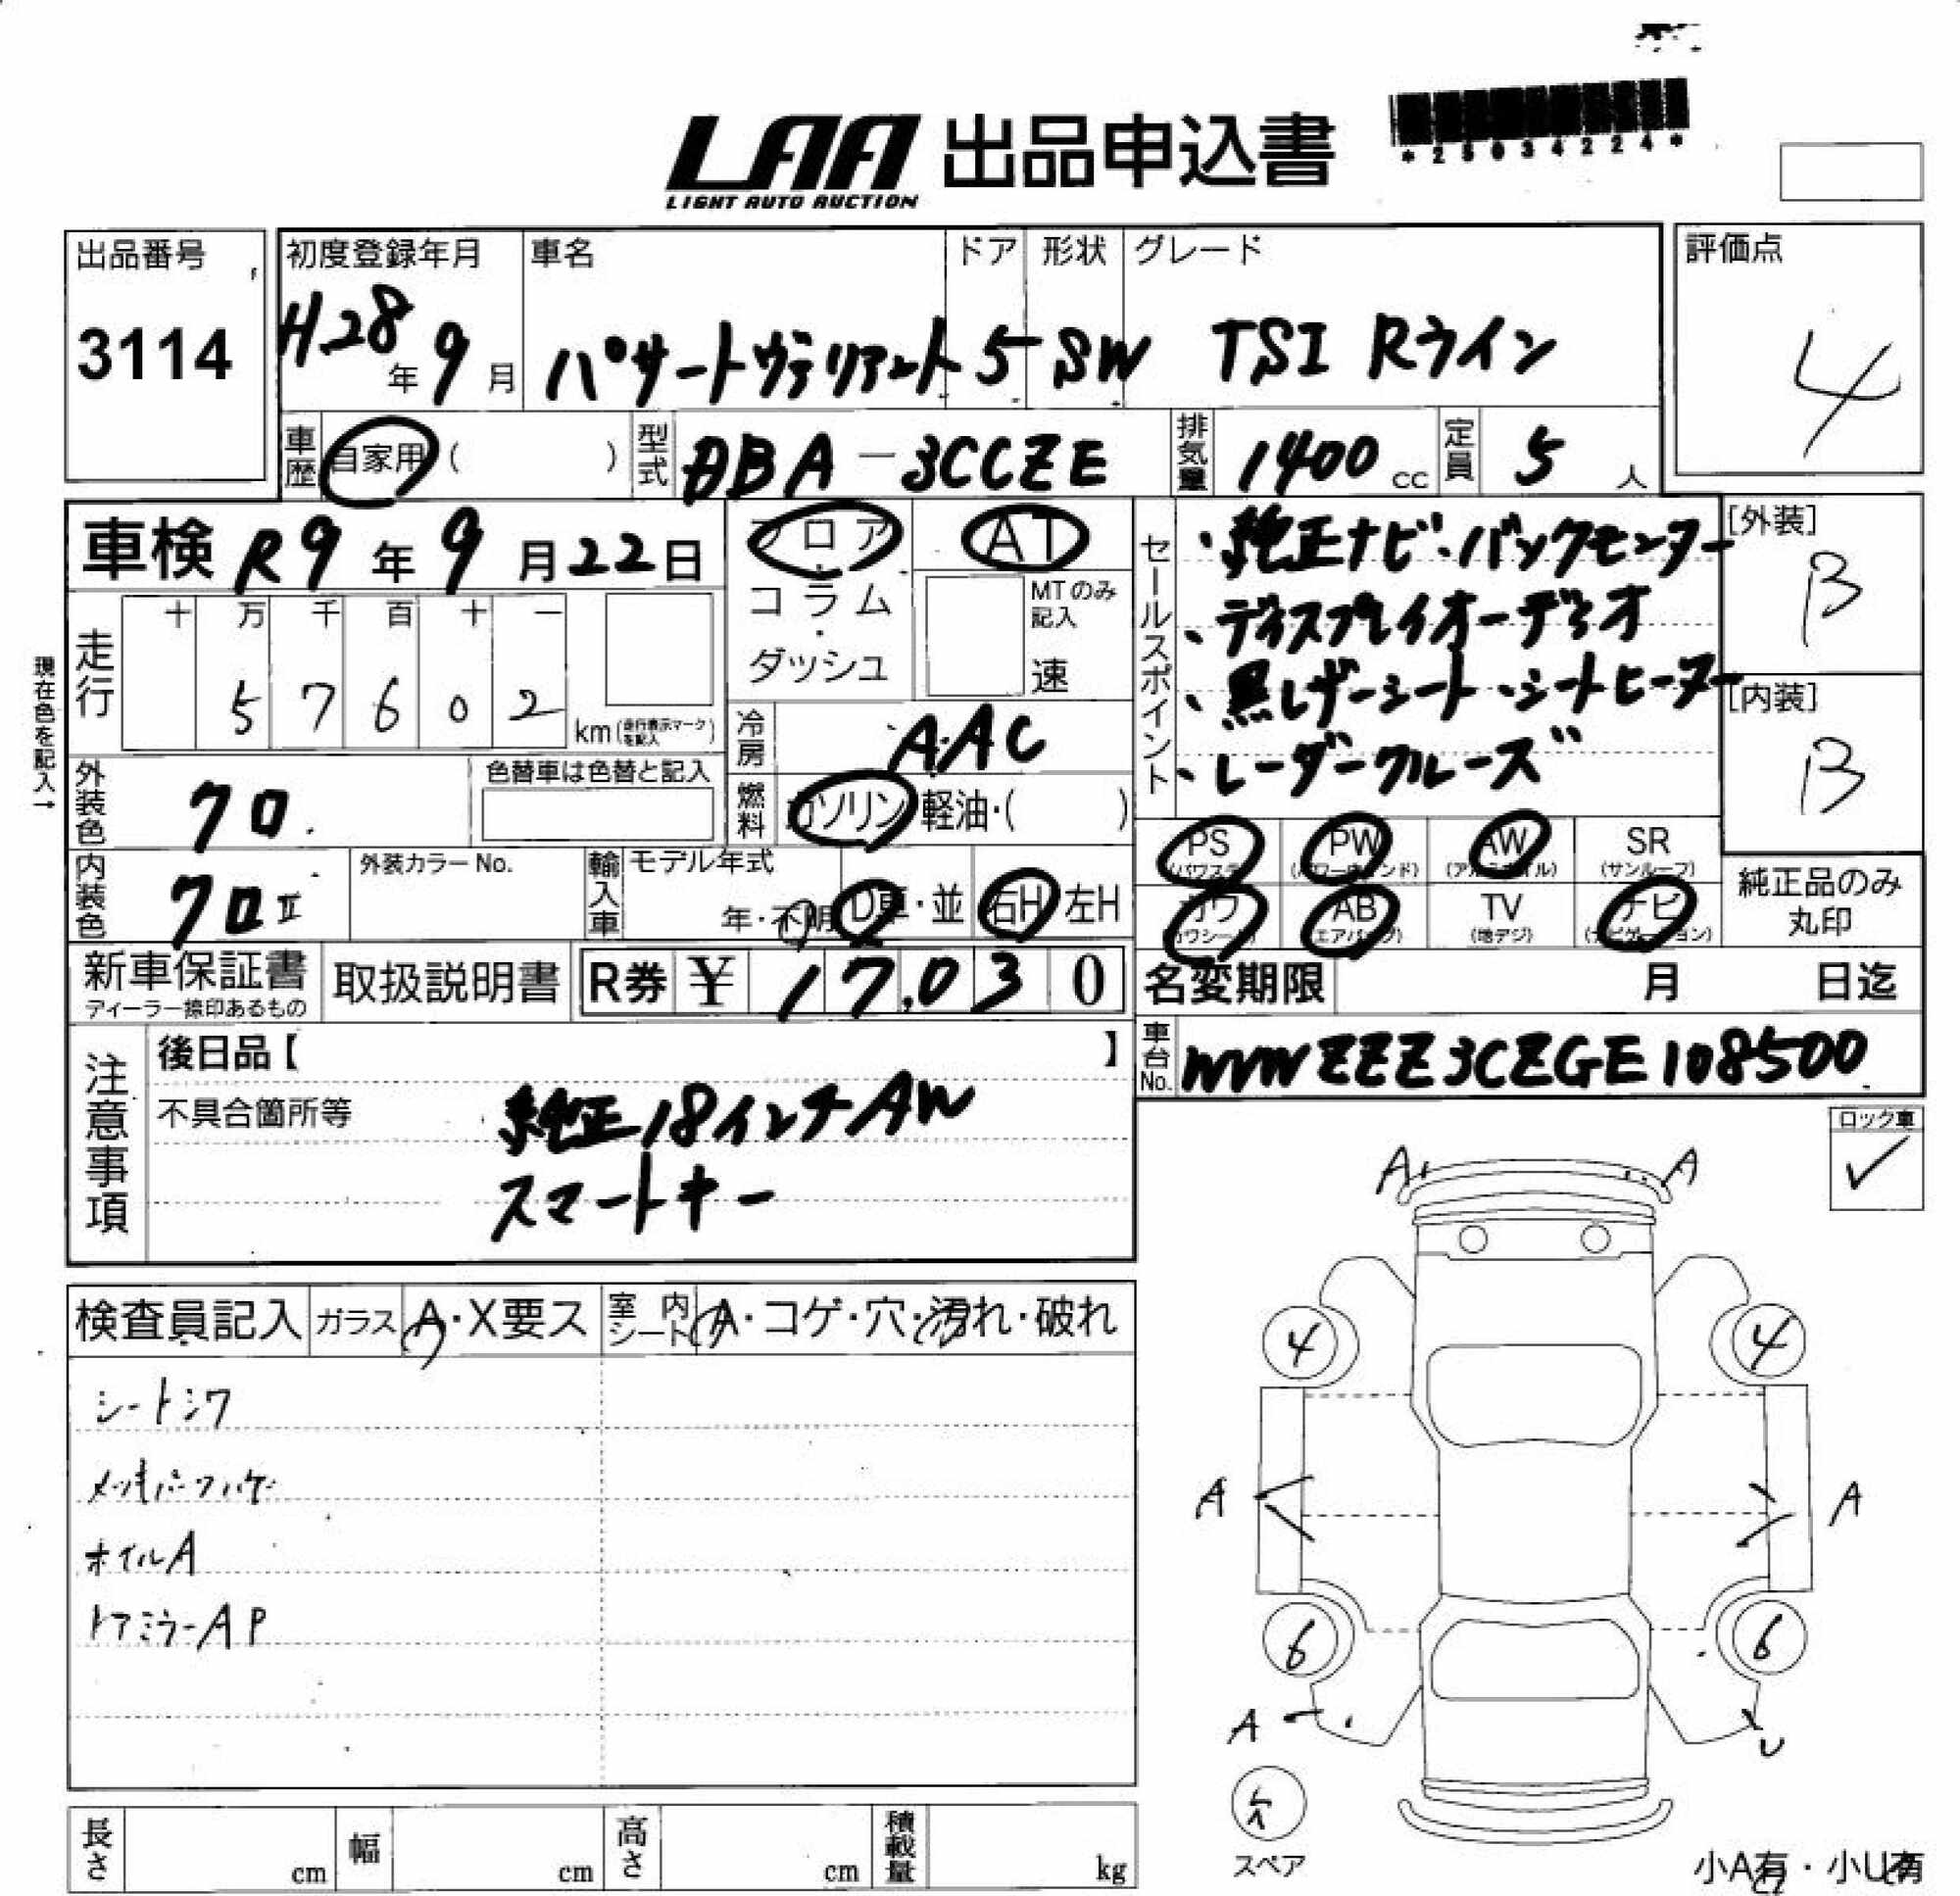 LAA 出品申込書
LIGHT AUTO AUCTION
*25034224*
出品番号
3114
初度登録年月
H28年9月
車名
パサートヴァリアント
ドア
5
形状
SW
グレード
TSI Rライン
評価点
4
車歴 自家用 ( )
型式 DBA-3CCZE
排気量 1400 cc
定員 5 人
車検 R9年9月22日
現在色を記入→
走行 十 万 千 百 十 一
5 7 6 0 2 km (走行表示マークを記入)
フロア・コラム・ダッシュ
AT
MTのみ記入
速
冷房 AAC
燃料 ガソリン・軽油・( )
セールスポイント
・純正ナビ・バックモニター
・ディスプレイオーディオ
・黒レザーシート・シートヒーター
・レーダークルーズ
[外装]
B
[内装]
B
外装色 クロ
色替車は色替と記入
内装色 クロII
外装カラーNo.
輸入車 モデル年式
年・不明 D車・並 右H 左H
PS (パワステ) PW (パワーウィンド) AW (アルミホイル) SR (サンルーフ)
カワ (カワシート) AB (エアバッグ) TV (地デジ) ナビ (ナビゲーション)
純正品のみ丸印
新車保証書
ディーラー捺印あるもの
取扱説明書
R券 ¥ 17,030
名変期限 月 日迄
車台No. WVWZZZ3CZGE108500
注意事項
後日品【 】
不具合箇所等
純正18インチAW
スマートキー
ロック車
✓
検査員記入 ガラス A・X要ス 室内シート A・コゲ・穴・汚れ・破れ
シートシワ
メッキパーツハゲ
ホイルA
ドアミラーAP
A A
4 4
A A
6 6
A U
スペア
小A有・小U有
長さ cm 幅 cm 高さ cm 積載量 kg